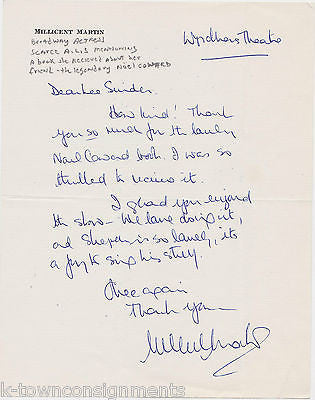 MILLICENT MARTIN
BROADWAY ACTRESS
SCARCE A.L.S MENTIONING
A BOOK SHE RECIEVED ABOUT HER
FRIEND - THE LEGENDARY NOËL COWARD
Wyndhams Theatre
Dear
How kind! Thank
you so much for the lovely
Noel Coward book. I was so
thrilled to receive it.
I glad you enjoyed
the show - We love doing it,
and is so lovely, its
a joy to sing his stuff.
Once again
Thank you -
k-townconsignments